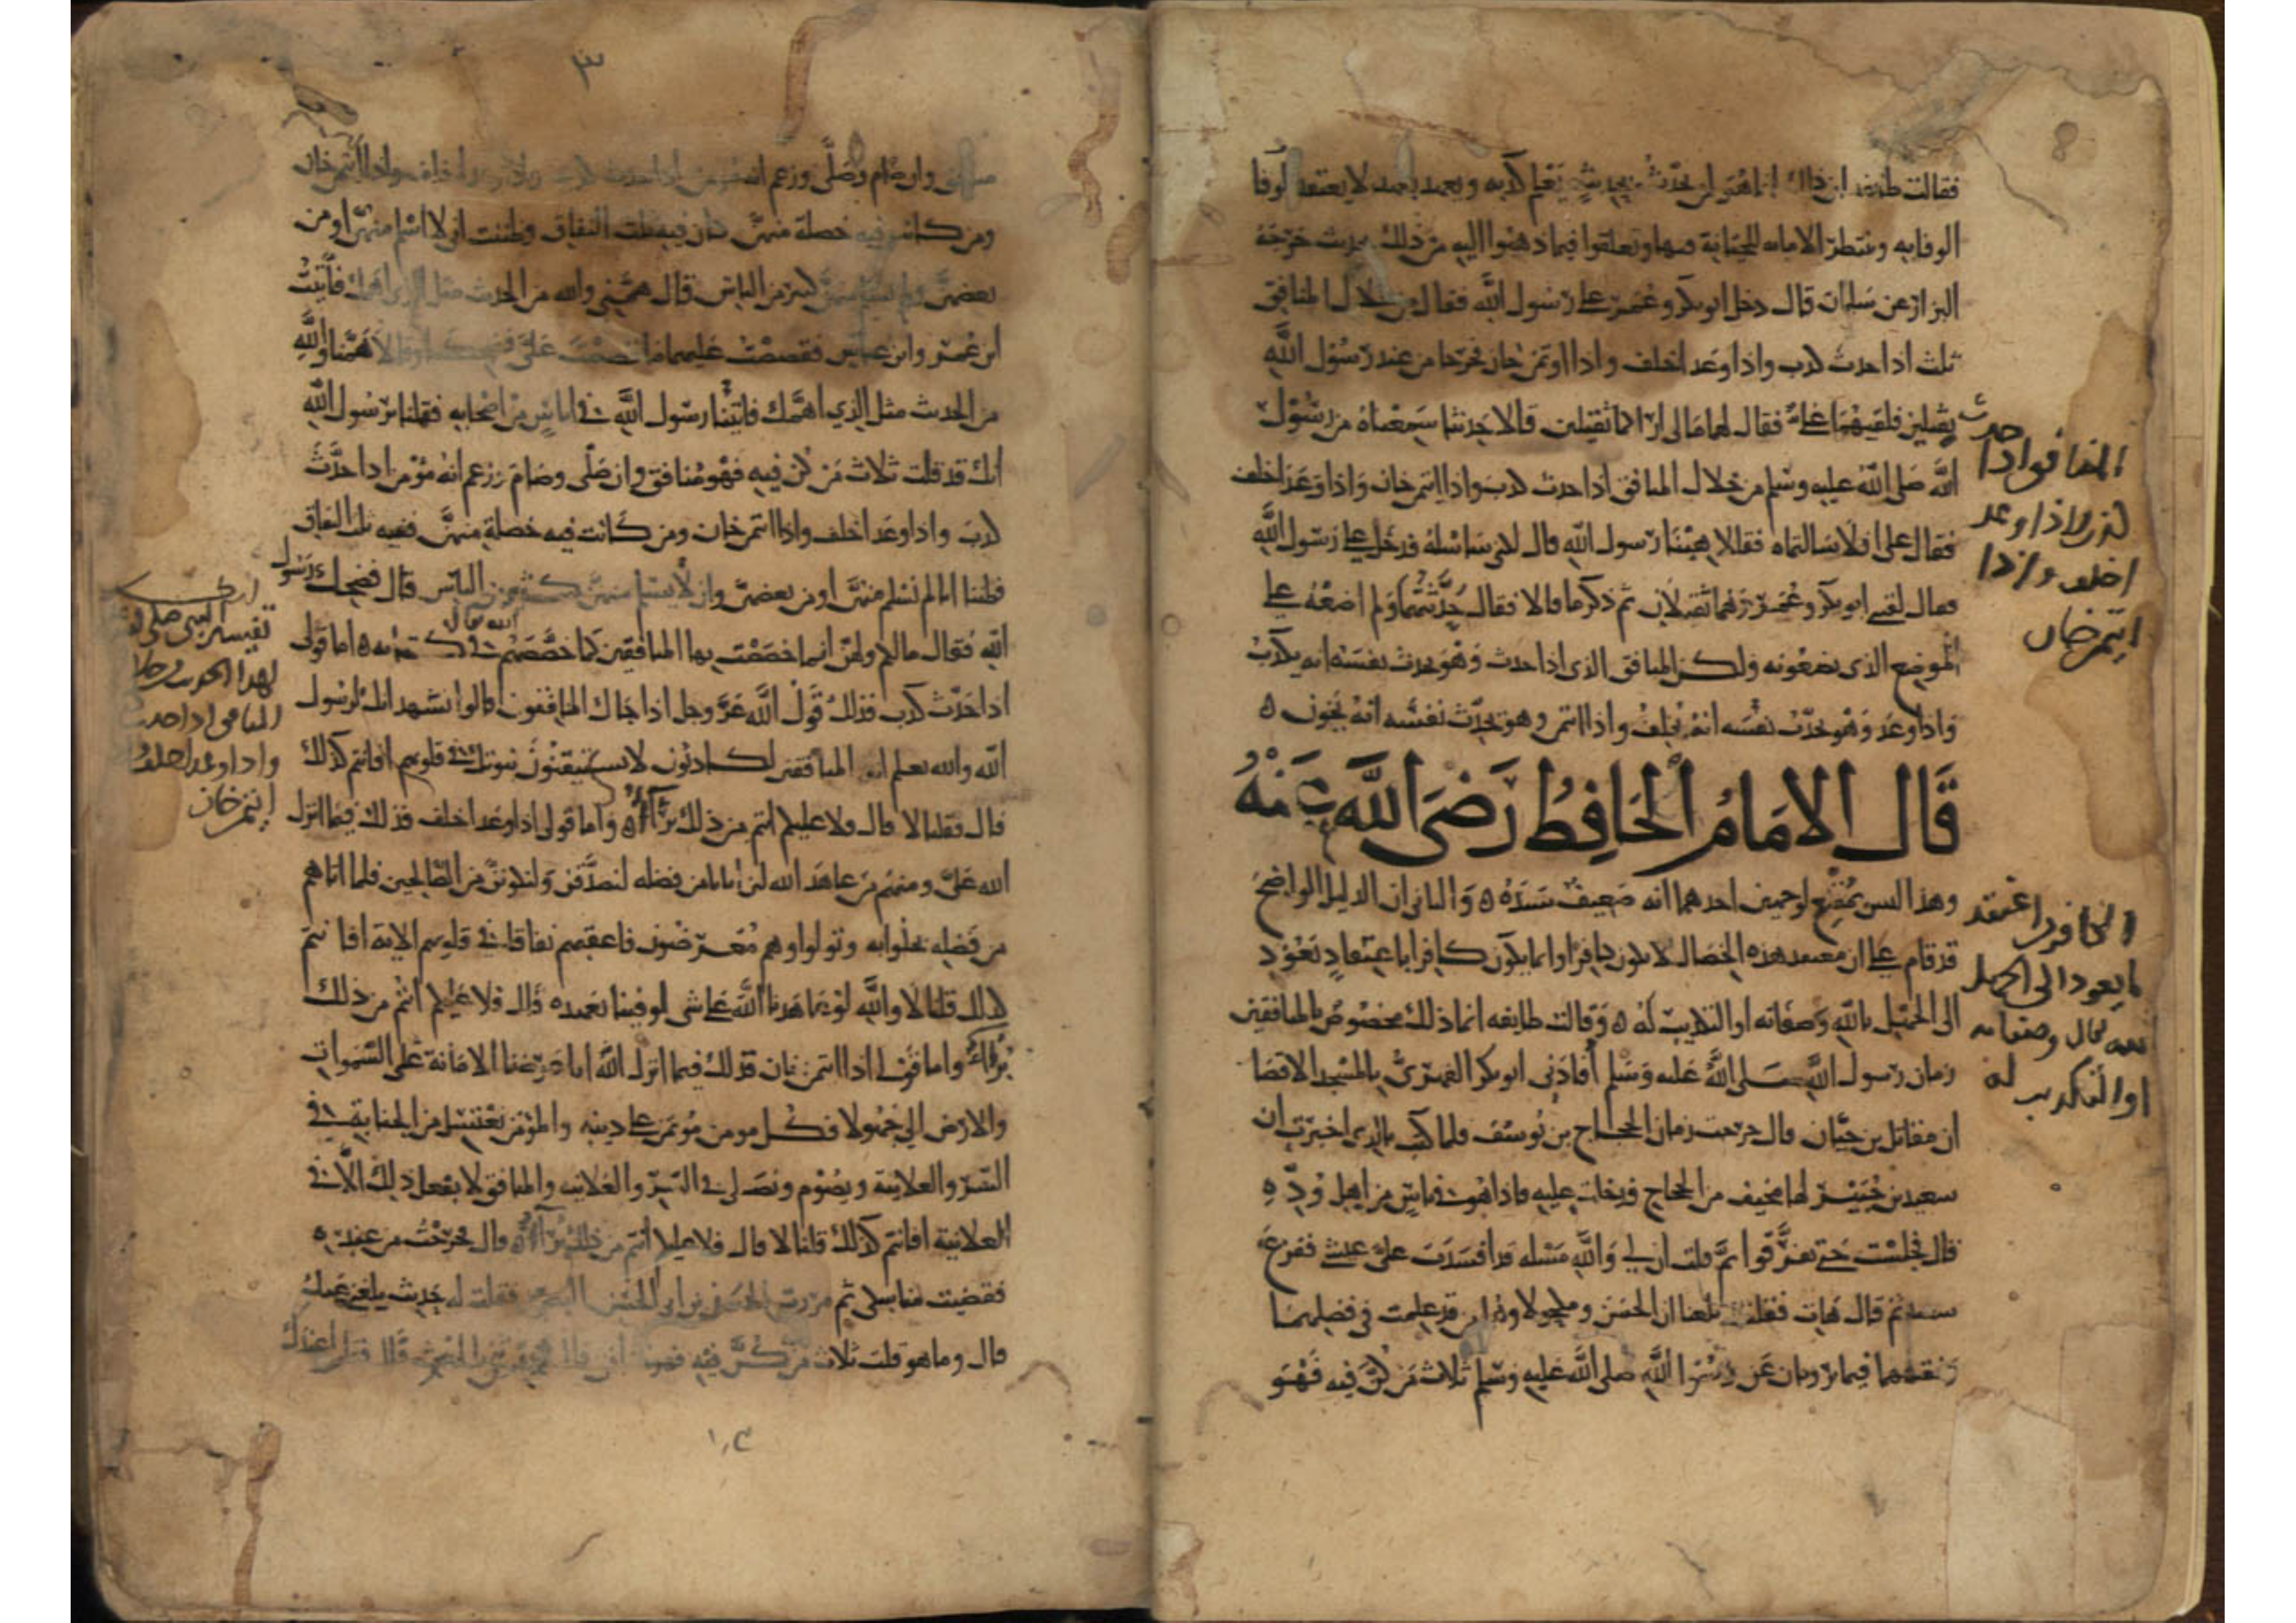 فقالت طائفة ان ذلك انما هو لمن يحدث بحديث يعلم كذبه ويعهد بعهد لا يعتقد الوفا
الوفا به وينتظر الامانة للخيانة فيها وتعلقوا فيما ذهبوا اليه من ذلك بحديث خرجه
البزار عن سلمان قال دخل ابو بكر وعمر على رسول الله فقال من خلال المنافق
ثلث اذا حدث كذب واذا وعد اخلف واذا اوتمن خان فخرجا من عند رسول الله
ثقيلين فلقيهما علي فقال لهما مالي اراكما ثقيلين قالا حديثا سمعناه من رسول
الله صلى الله عليه وسلم من خلال المنافق اذا حدث كذب واذا ائتمن خان واذا وعد اخلف
فقال علي افلا سالتماه فقالا هبنا رسول الله قال لكني ساسله فدخل على رسول الله
فقال لقيني ابو بكر وعمر وهما ثقيلان ثم ذكر ما قالا فقال حدثتهما ولم اضعه على
الموضع الذي يضعونه ولكن المنافق الذي اذا حدث وهو يحدث نفسه انه يكذب
واذا وعد وهو يحدث نفسه انه يخلف واذا ائتمن وهو يحدث نفسه انه يخون ه
قَال الامَامُ الحَافِظُ رَضَى اللَّه عَنْهُ
وهذا ليس بمقنع لوجهين احدهما انه ضعيف سنده ه والثاني ان الدليل الواضح
قد قام على ان معتمد هذه الخصال لا يكون كافرا وانما يكون كافرا باعتقاد يعود
الى الجهل بالله وصفاته او التكذيب له ه وقالت طائفه انما ذلك مخصوص بالمنافقين
زمان رسول الله صلى الله عليه وسلم افادني ابو بكر الفهري بالمسجد الاقصا
ان مقاتل بن حيان قال خرجت زمان الحجاج بن يوسف فلما كنت بالري اخبرت ان
سعيد بن جبير بها مخيف من الحجاج فدخلت عليه فاذا هو في ناس من اهل وده
قال فجلست حتى تفرقوا ثم قلت ان لي والله مسئله قد افسدت علي عيشي ففزع
سعيد ثم قال هات فقلت بلغنا ان الحسن ومكحولا وهما من قد علمت في فضلهما
وفقههما فيما يرويان عن رسول الله صلى الله عليه وسلم ثلاث من كن فيه فهو
المنافق اذا حدث
كذب واذا وعد
اخلف واذا
ايتمن خان
الكافر اعتقد
ما يعود الى الجهل
بالله تعالى وصفاته
او التكذيب له
٣
منافق وان صام وصلى وزعم انه مؤمن اذا حدث كذب واذا وعد اخلف واذا ائتمن خان
ومن كانت فيه خصلة منهن كان فيه ثلث النفاق وظننت ان لا اسلم منهن او من
بعضهن ولم يسلم منهن كثير من الناس قال همني والله من الحديث مثل الذي اهمك فاتيت
ابن عمر وابن عباس فقصصت عليهما ما قصصت علي فضحكا وقالا اهمنا والله
من الحديث مثل الذي اهمك فاتينا رسول الله في اناس من اصحابه فقلنا يرسول الله
انك قد قلت ثلاث من كن فيه فهو منافق وان صلى وصام وزعم انه مؤمن اذا حدث
كذب واذا وعد اخلف واذا ائتمن خان ومن كانت فيه خصلة منهن ففيه ثلث النفاق
فظننا انا لم نسلم منهن او من بعضهن وان لا يسلم منهن كثير من الناس قال فضحك رسول
الله فقال مالكم ولهن انما خصصت بها المنافقين كما خصهم الله تعالى في كتابه ه اما قولي
اذا حدث كذب فذلك قول الله عز وجل اذا جاك المنافقون قالوا نشهد انك لرسول
الله والله يعلم ان المنافقين لكاذبون لا يستيقنون نبوتك في قلوبهم افانتم كذلك
قال فقلنا لا قال فلا عليكم انتم من ذلك برآء ه واما قولي اذا وعد اخلف فذلك فيما انزل
الله علي ومنهم من عاهد الله لئن اتانا من فضله لنصدقن ولنكونن من الصالحين فلما اتاهم
من فضله بخلوا به وتولوا وهم معرضون فاعقبهم نفاقا في قلوبهم الاية افانتم
كذلك قلنا لا والله لو عاهدنا الله على شي لوفينا بعهده ه قال فلا عليكم انتم من ذلك
برآء واما قولي اذا ائتمن خان فذلك فيما انزل الله انا عرضنا الامانة على السموات
والارض الى جهولا فكل مومن مؤتمن على دينه والمؤمن يغتسل من الجنابة في
السر والعلانية ويصوم ويصلي في السر والعلانيه والمنافق لا يفعل ذلك الا في
العلانية افانتم كذلك قلنا لا قال فلا عليكم انتم من ذلك برآء ه قال فخرجت من عنده ه
فقضيت مناسكي ثم مررت بالحسن بن ابي الحسن البصري فقلت له حديث بلغني عنك
قال وما هو قلت ثلاث من كن فيه
تفسير النبي صلى
لهذا الحديث
المنافق اذا حدث
واذا وعد اخلف
ايتمن خان